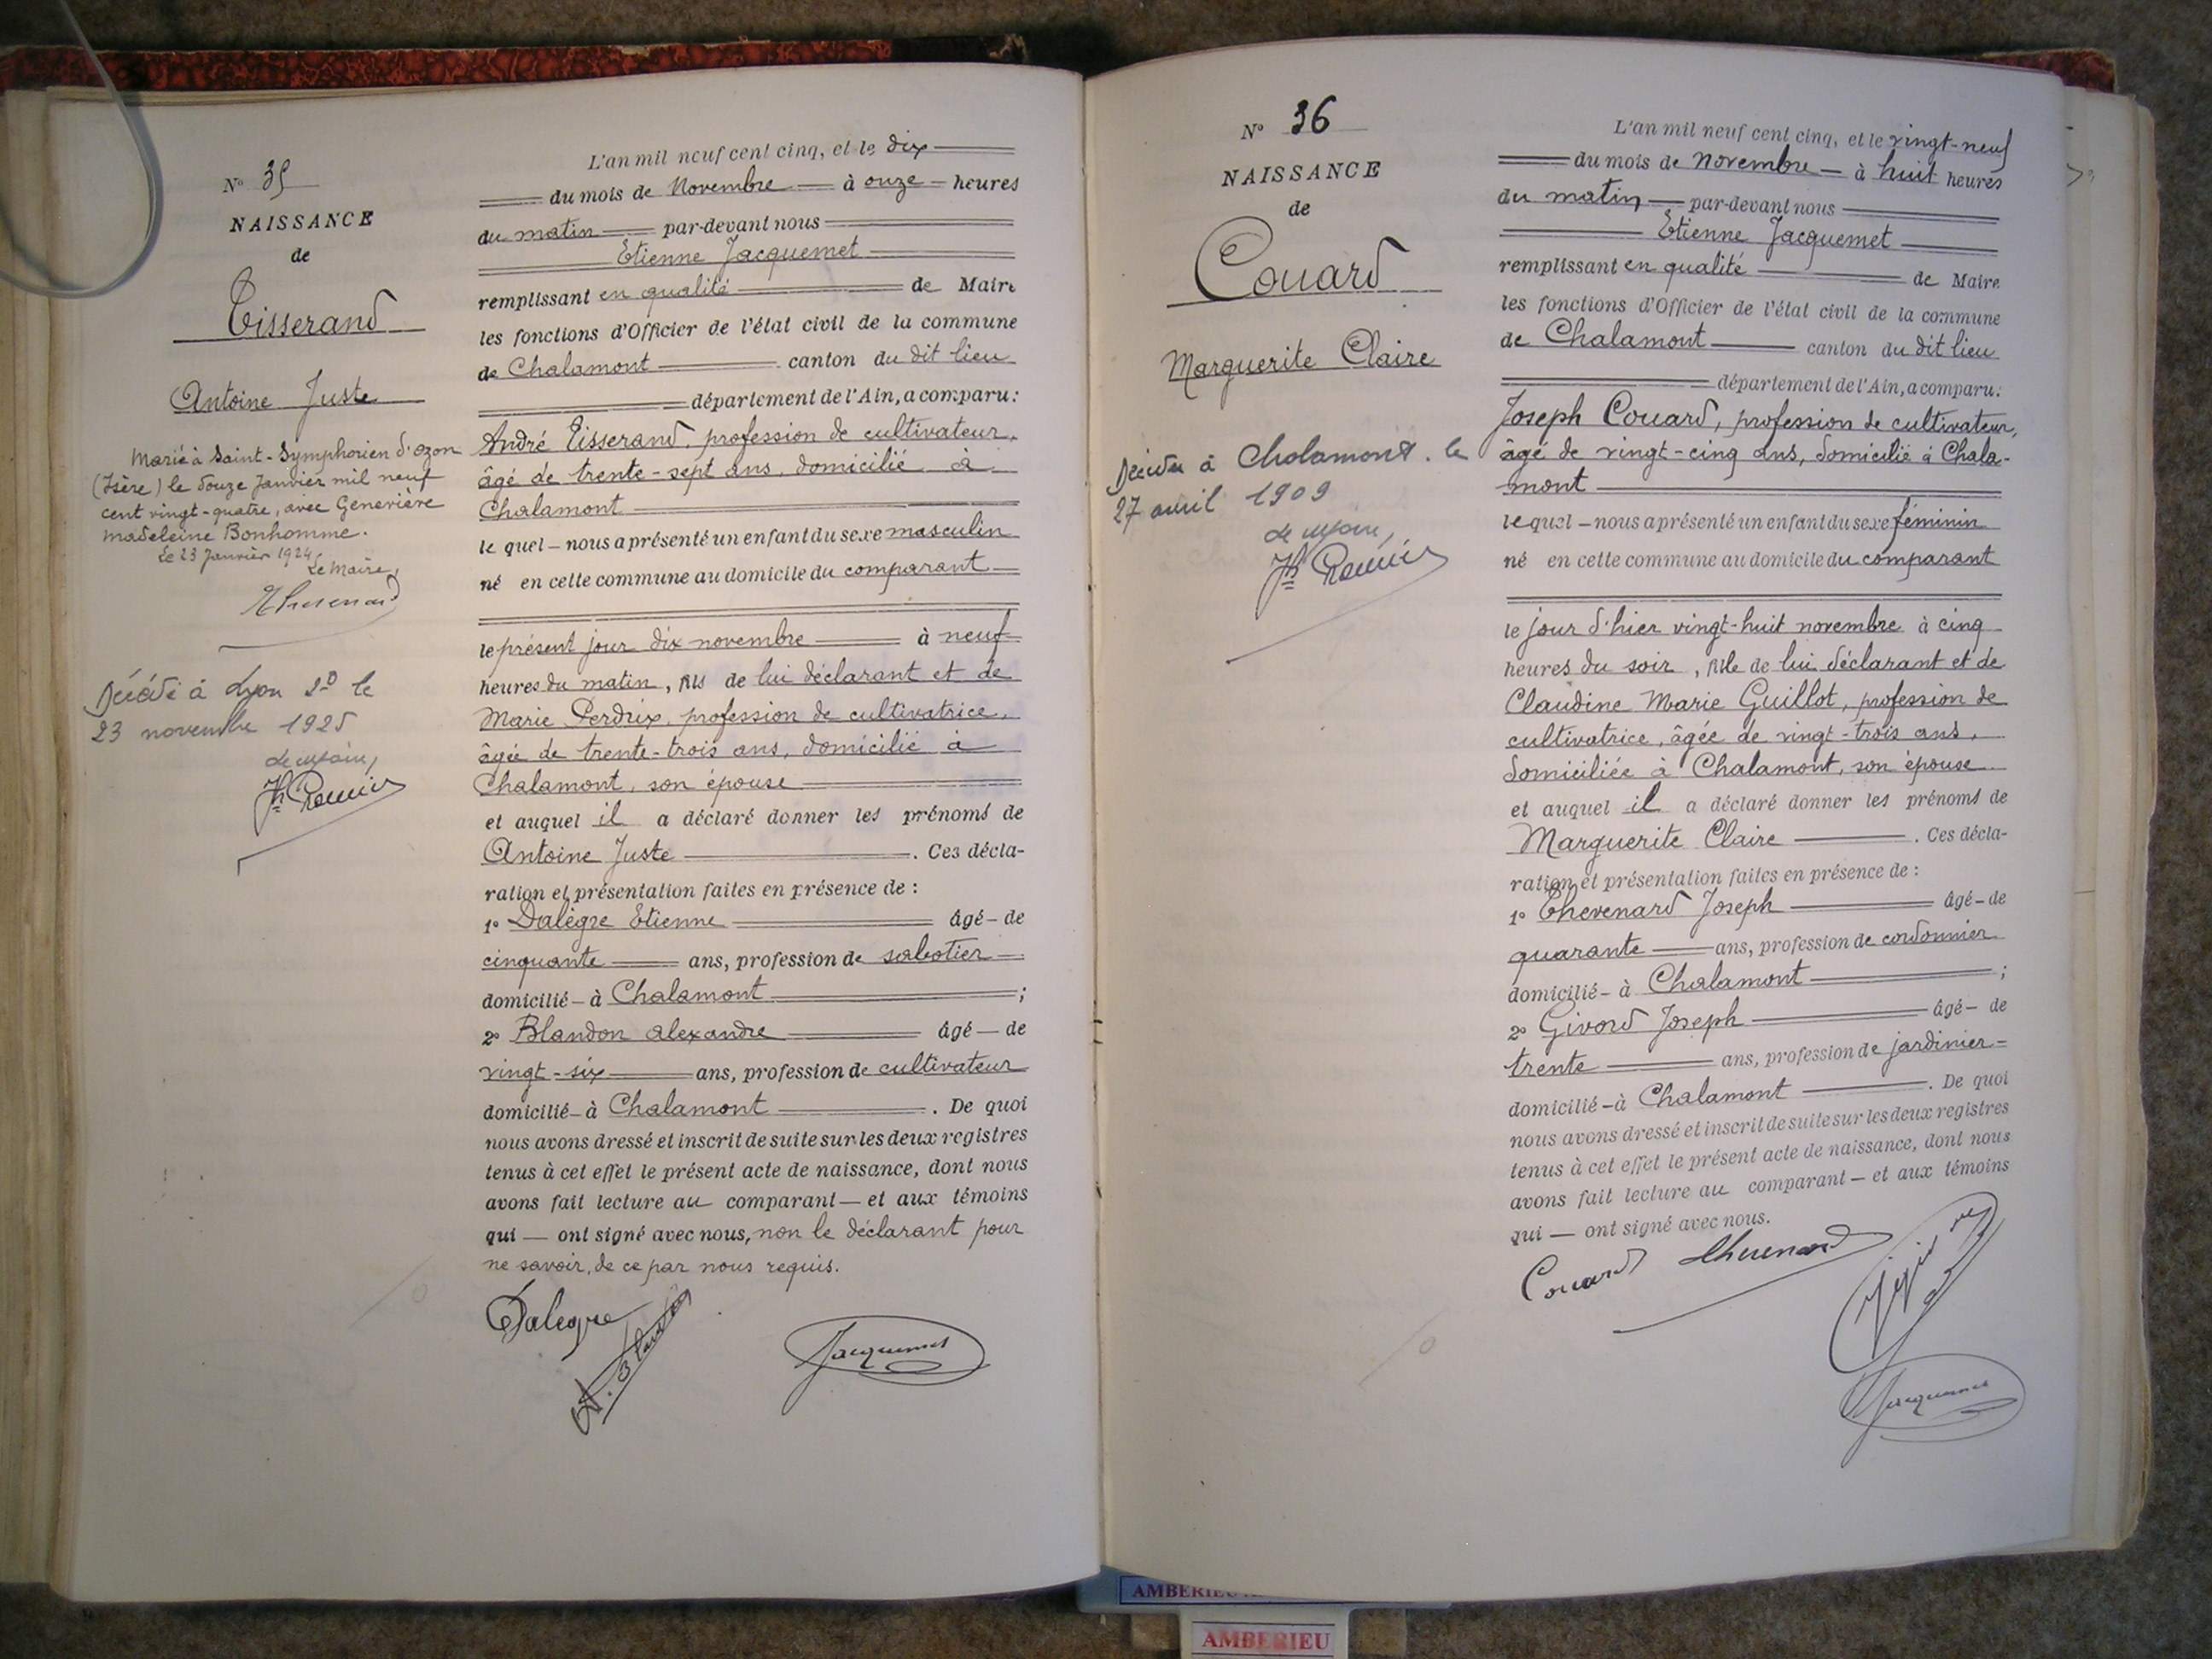 N° 35
NAISSANCE
de
Tisserand
Antoine Juste
Marié à Saint-Symphorien d'Ozon
(Isère) le douze Janvier mil neuf
cent vingt-quatre, avec Geneviève
Madeleine Bonhomme.
Le 23 Janvier 1924
Le Maire,
Décédé à Lyon 2D le
23 novembre 1925
Le Maire,
L'an mil neuf cent cinq, et le dix
du mois de Novembre à onze heures
du matin par-devant nous
Etienne Jacquemet
remplissant en qualité de Maire
les fonctions d'Officier de l'état civil de la commune
de Chalamont canton du dit lieu
département de l'Ain, a comparu:
André Tisserand, profession de cultivateur,
âgé de trente-sept ans, domicilié à
Chalamont
le quel nous a présenté un enfant du sexe masculin
né en cette commune au domicile du comparant
le présent jour dix novembre à neuf
heures du matin, fils de lui déclarant et de
Marie Perdrix, profession de cultivatrice,
âgée de trente-trois ans, domicilié à
Chalamont, son épouse
et auquel il a déclaré donner les prénoms de
Antoine Juste. Ces décla-
ration et présentation faites en présence de :
1° Dalègre Etienne âgé de
cinquante ans, profession de sabotier
domicilié à Chalamont ;
2° Blandon alexandre âgé de
vingt-six ans, profession de cultivateur
domicilié à Chalamont. De quoi
nous avons dressé et inscrit de suite sur les deux registres
tenus à cet effet le présent acte de naissance, dont nous
avons fait lecture au comparant et aux témoins
qui ont signé avec nous, non le déclarant pour
ne savoir, de ce par nous requis.
Dalegre
Jacquemet
N° 36
NAISSANCE
de
Couard
Marguerite Claire
Décédée à Chalamont. le
27 avril 1909
Le Maire,
L'an mil neuf cent cinq, et le vingt-neuf
du mois de Novembre à huit heures
du matin par-devant nous
Etienne Jacquemet
remplissant en qualité de Maire
les fonctions d'Officier de l'état civil de la commune
de Chalamont canton du dit lieu
département de l'Ain, a comparu:
Joseph Couard, profession de cultivateur,
âgé de vingt-cinq ans, domicilié à Chala-
mont
le quel nous a présenté un enfant du sexe féminin
né en cette commune au domicile du comparant
le jour d'hier vingt-huit novembre à cinq
heures du soir, fille de lui déclarant et de
Claudine Marie Guillot, profession de
cultivatrice, âgée de vingt-trois ans,
domiciliée à Chalamont, son épouse
et auquel il a déclaré donner les prénoms de
Marguerite Claire. Ces décla-
ration et présentation faites en présence de :
1° Thevenard Joseph âgé de
quarante ans, profession de cordonnier
domicilié à Chalamont ;
2° Givord Joseph âgé de
trente ans, profession de jardinier
domicilié à Chalamont. De quoi
nous avons dressé et inscrit de suite sur les deux registres
tenus à cet effet le présent acte de naissance, dont nous
avons fait lecture au comparant et aux témoins
qui ont signé avec nous.
Couard Thevenard
Jacquemet
AMBERIEU
AMBERIEU